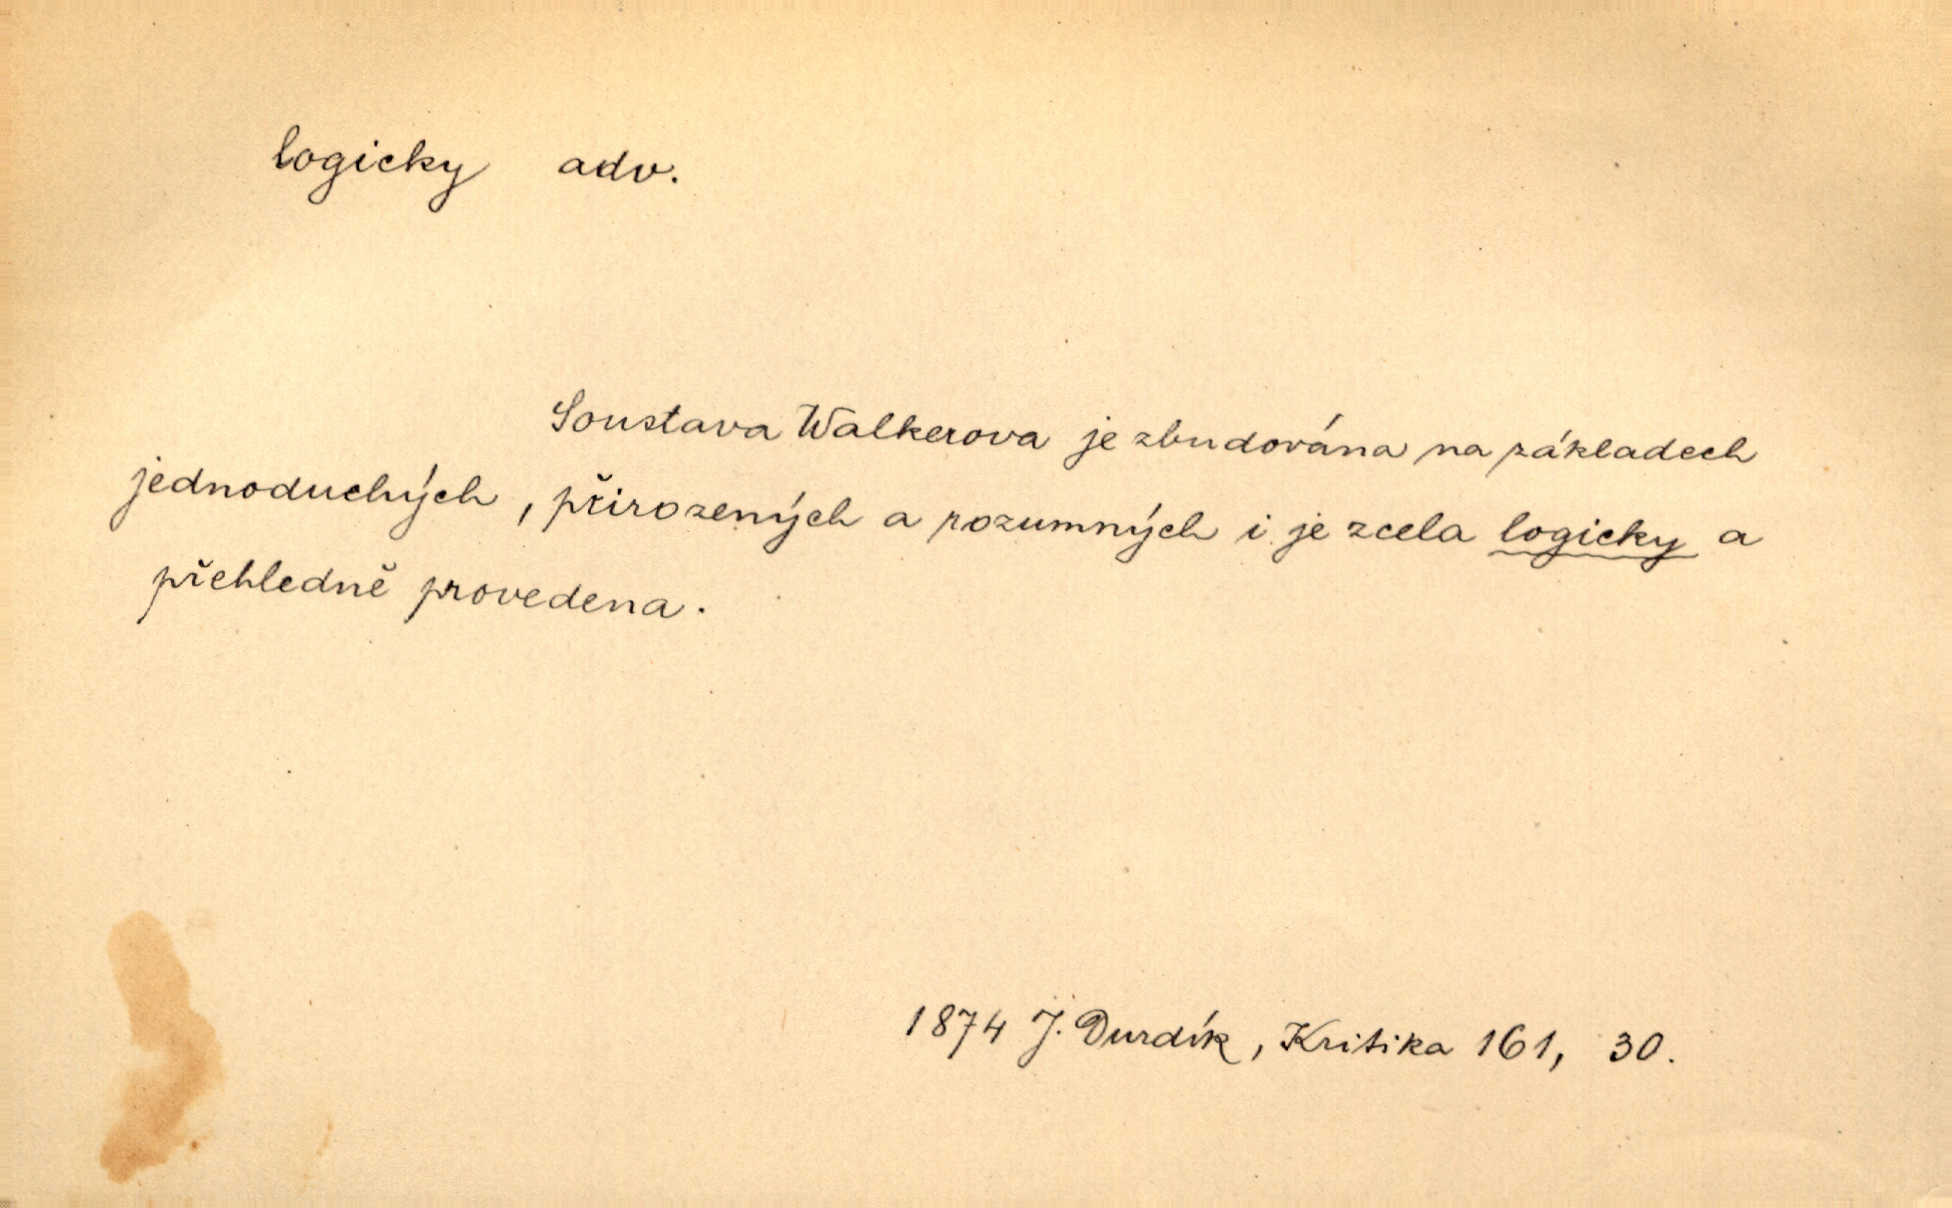 logicky adv.
Soustava Walkerova je zbudována na základech
jednoduchých, přirozených a rozumných i je zcela logicky a
přehledně provedena.
1874 J. Durdík, Kritika 161, 30.